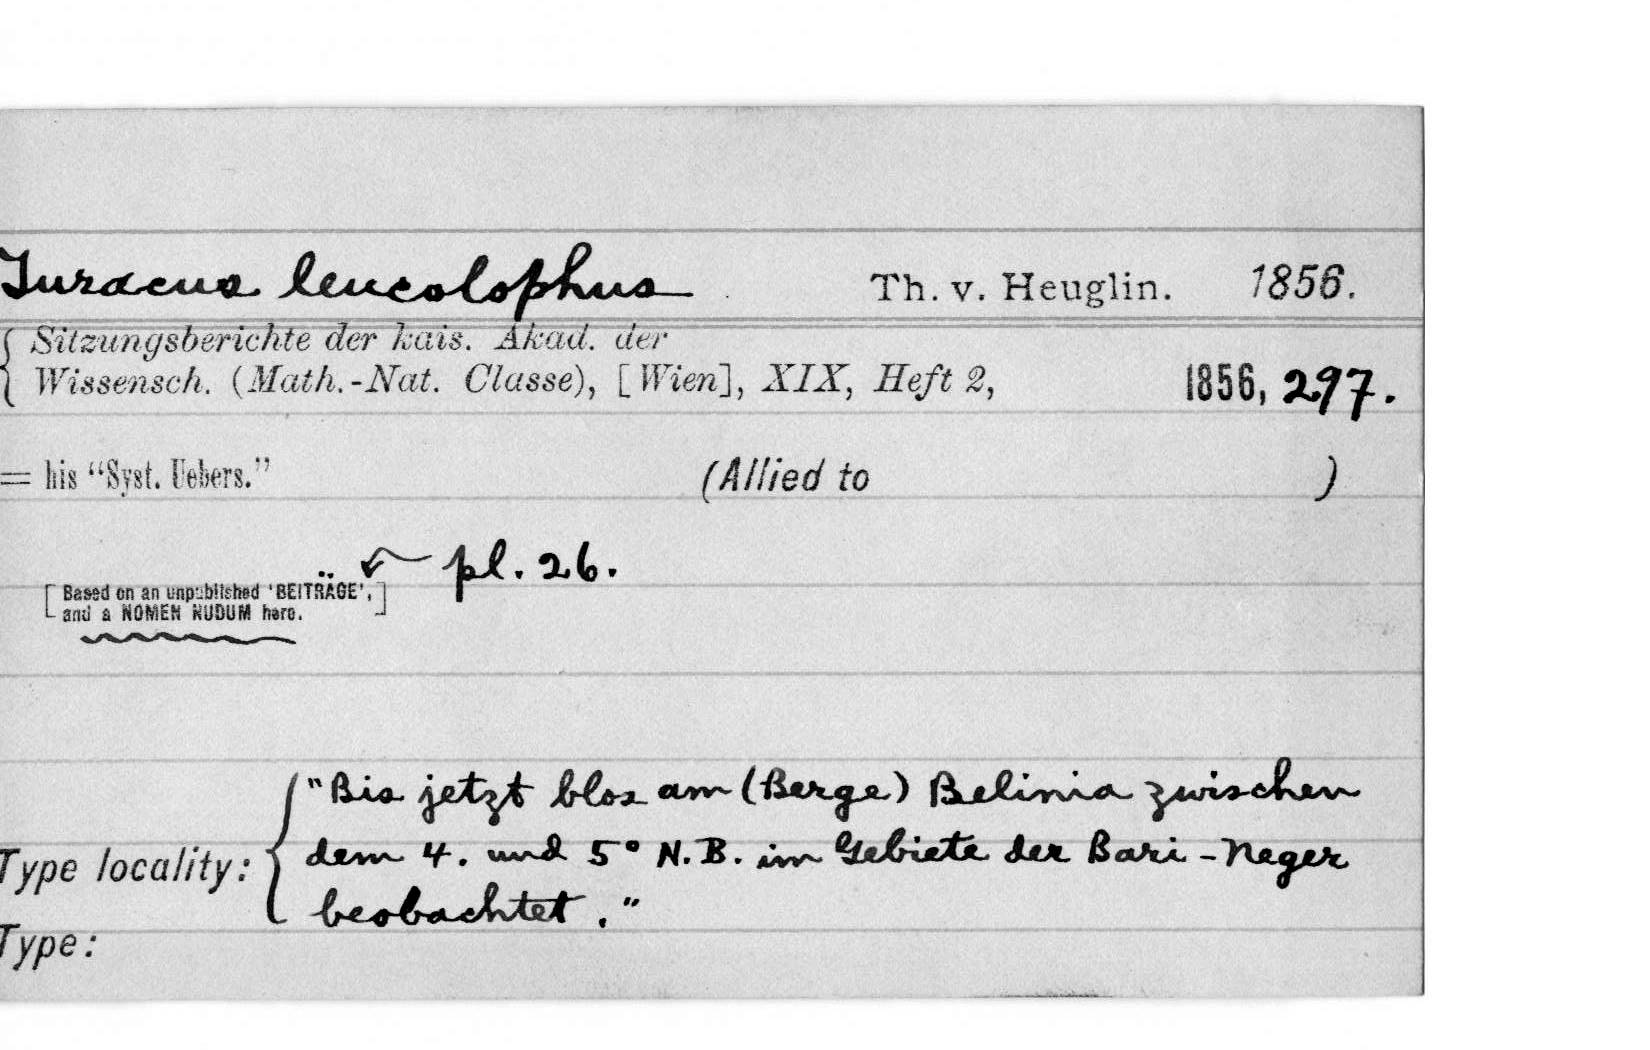 Turacus leucolophus Th. v. Heuglin. 1856.
Sitzungsberichte der kais. Akad. der
Wissensch. (Math.-Nat. Classe), [Wien], XIX, Heft 2, 1856, 297.
= his “Syst. Uebers.” (Allied to )
pl. 26.
[Based on an unpublished 'BEITRÄGE',
and a NOMEN NUDUM here.]
"Bis jetzt blos am (Berge) Belinia zwischen
dem 4. und 5° N.B. im Gebiete der Bari-Neger
Type locality:
beobachtet."
Type: